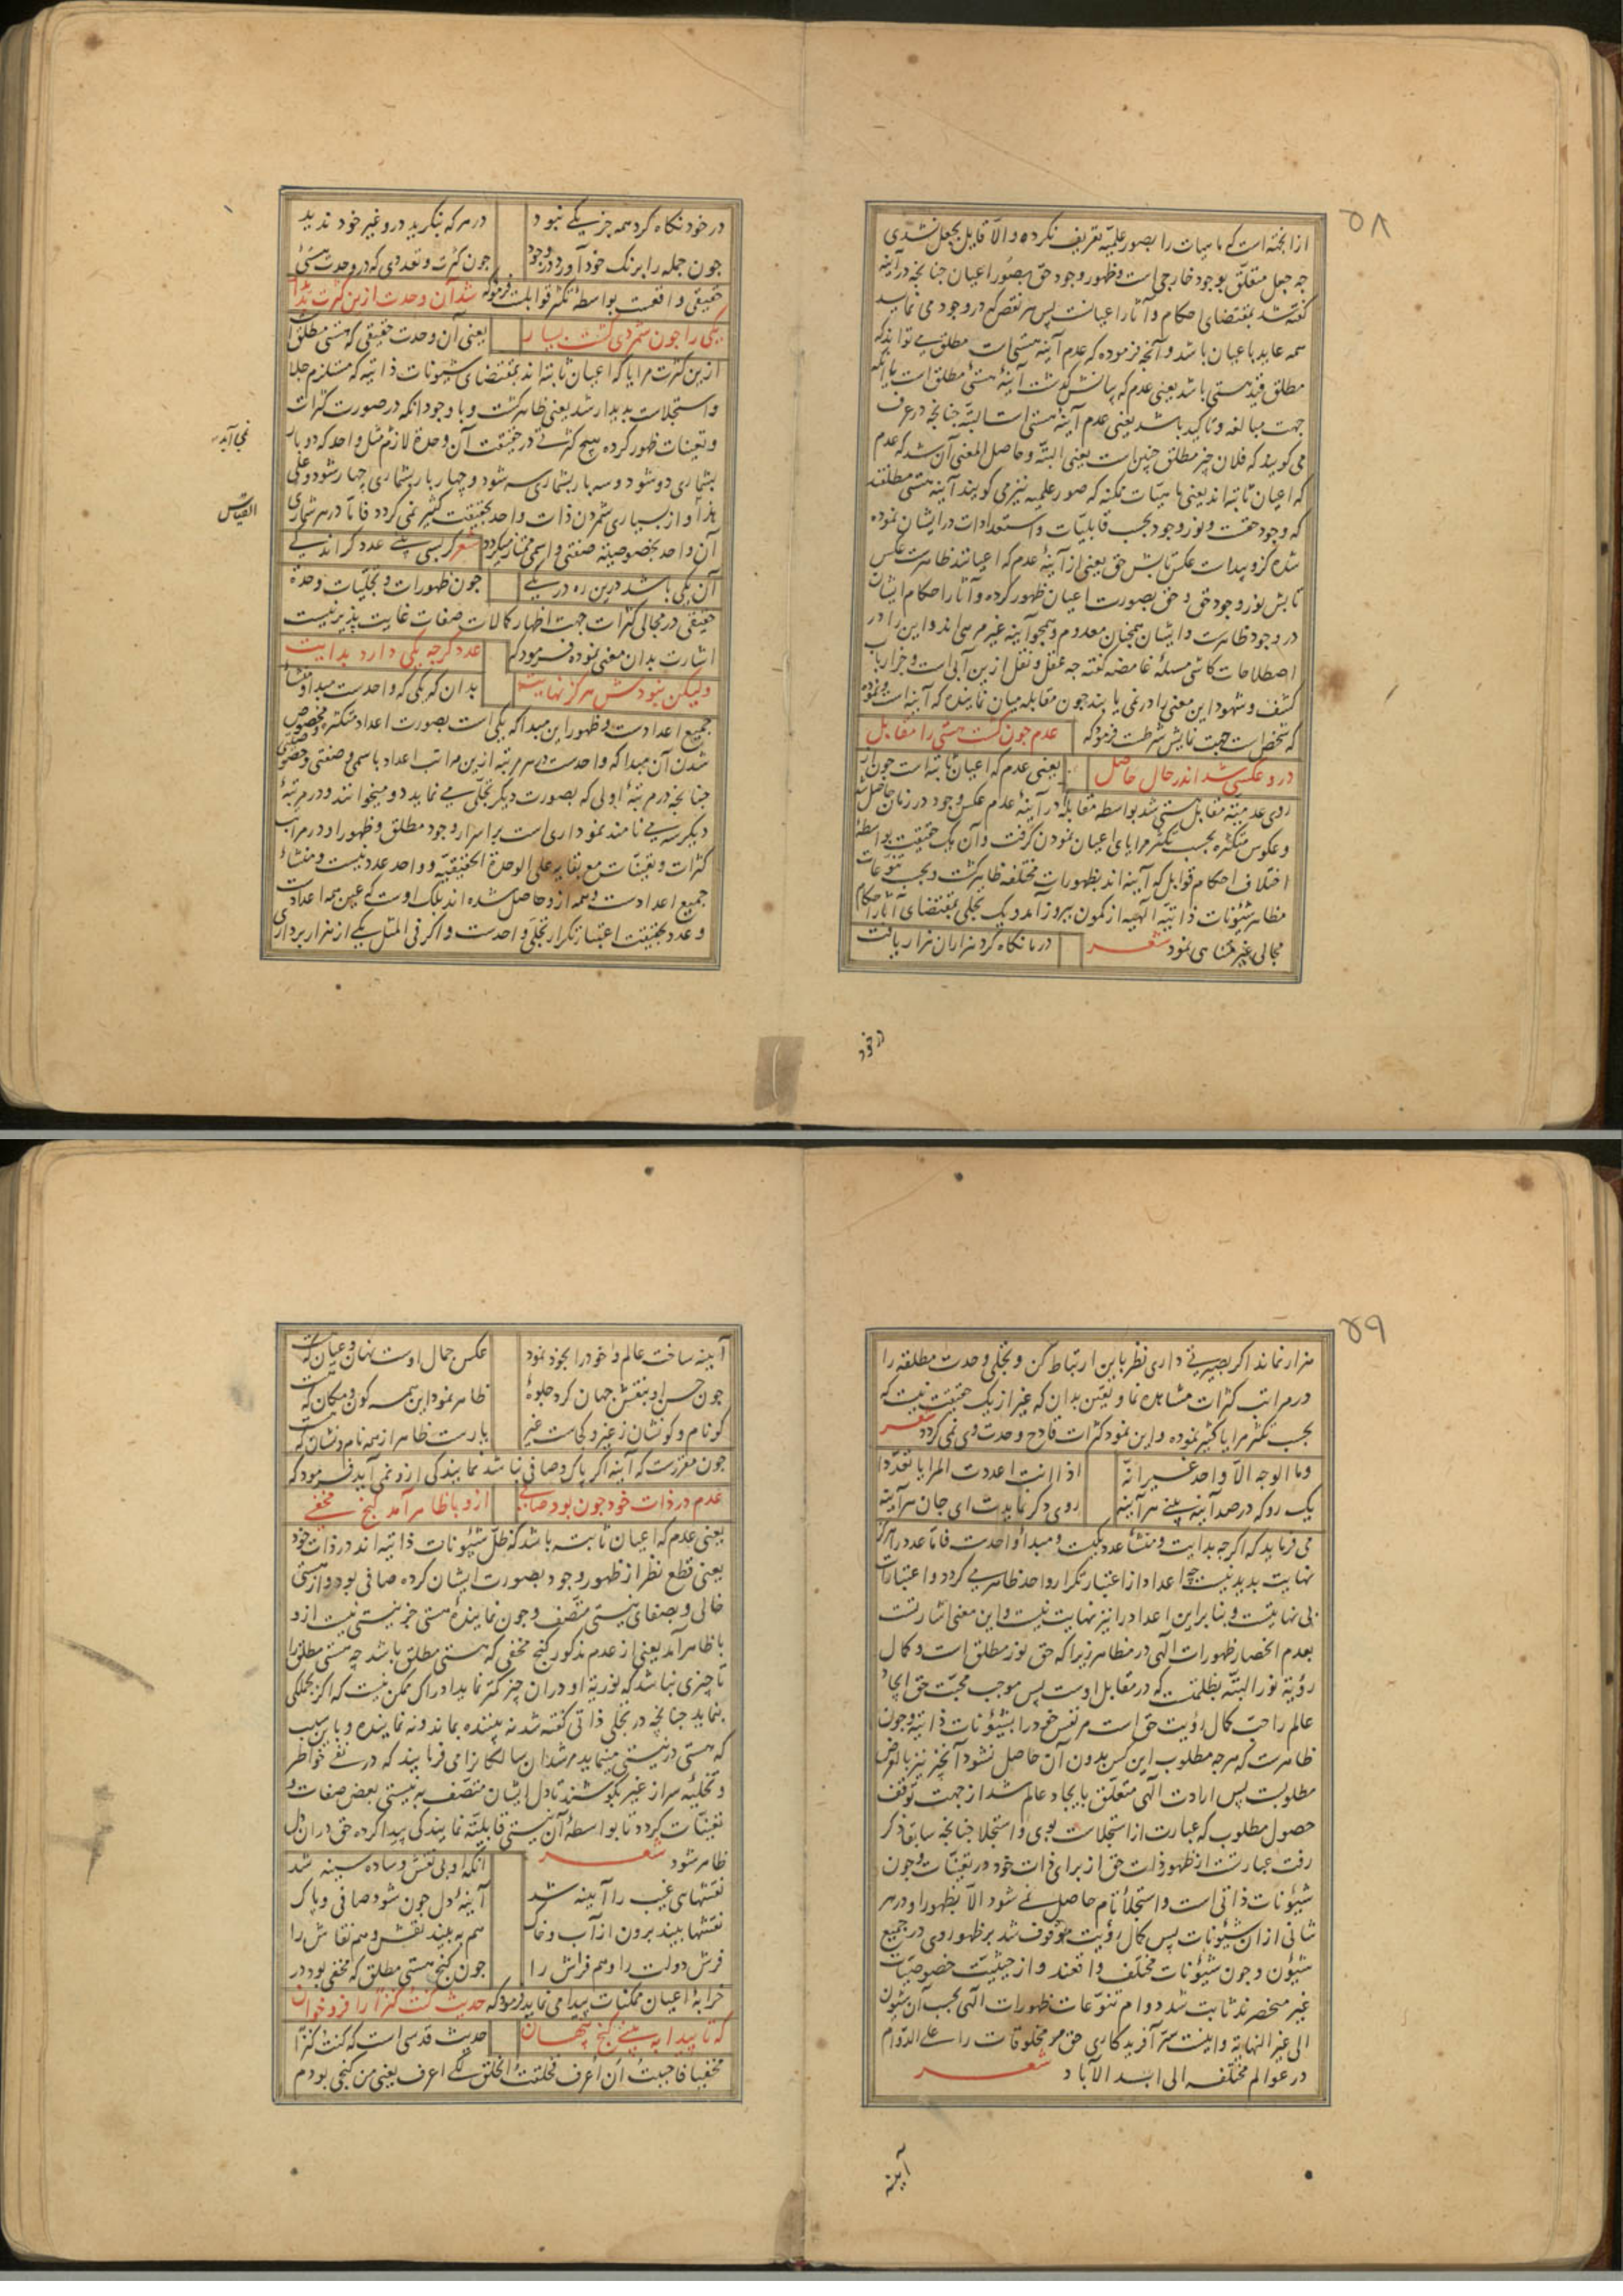 ۵۸
ازانجهة است که ماهیات را بصور علمیّه تعریف نکرده و الا قابل بجعل نشدی
چه جعل متعلّق بوجود خارجی است و ظهور وجود حق بصور اعیان چنانچه در آینه
کفته شد بمقتضای احکام و آثار اعیانست پس هر نقص که در وجود می نماید
همه عاید باعیان باشد و آنچه فرموده که عدم آینه هستی است مطلق می تواند که
مطلق قید هستی باشد یعنی عدم که بیانش کذشت آینهٔ هستی مطلق است یا آنکه
جهت مبالغه و تاکید باشد یعنی عدم آینهٔ هستی است البتّه چنانچه در عرف
می کویند که فلان چیز مطلق چنین است یعنی البتّه و حاصل المعنی آن شد که عدم
که اعیان ثابته اند یعنی ماهیّات ممکنه که صور علمیه نیز می کویند آینه هستی مطلقند
که وجود حقست و نور وجود بحسب قابلیّات و استعدادات در ایشان نموده
شده کزو پیداست عکس تابش حق یعنی از آینهٔ عدم که اعیانند ظاهرست عکس
تابش نور وجود حق و حق بصورت اعیان ظهور کرده و آثار احکام ایشان
در وجود ظاهرست و ایشان همچنان معدوم و همچو آینه غیر مرئی اند و این را در
اصطلاحات کاشی مسئله غامضه کفته چه عقل و نقل ازین آبی است و جز ارباب
کشف و شهود این معنی را در نمی یابند چون مقابله میان نماینده که آینه است و نموده
که شخص است جهت نمایش شرطست فرمود که عدم چون کشت هستی را مقابل
درو عکسی شد اندر حال حاصل یعنی عدم که اعیان ثابته است چون از
روی عدمیّت مقابل هستی شد بواسطه مقابله در آینهٔ عدم عکس وجود در زمان حاصل شد
و عکوس متکثره بحسب تکثر مرایای اعیان نمودن کرفت و آن یک حقیقت بواسطهٔ
اختلاف احکام قوابل که آینه اند بظهورات مختلفه ظاهر کشت و بحسب تنوّعات
مظاهر شئونات ذاتیّه الهیه از کمون ببروز آمد و یک تجلی بمقتضای آثار احکام
مجالی غیر متناهی نمود شعر در ما نکاه کرد هزاران هزار یافت
در خود
در خود نکاه کرد همه جز یکی نبود در هر که بنکرید درو غیر خود ندید
چون جمله را برنک خود آورد در وجود چون کثرت و تعددی که در وحدت هستیٔ
حقیقی واقعست بواسطهٔ تکثر قوابلست فرمود که شد آن وحدت ازین کثرت پدیدار
یکی را چون شمردی کشت بسیار یعنی آن وحدت حقیقی که هستی مطلق است
ازین کثرت مرایا که اعیان ثابته اند بمقتضای شئونات ذاتیه که مستلزم جلا
و استجلاست پدیدار شد یعنی ظاهر کشت و با وجود انکه در صورت کثرات
و تعینات ظهور کرده هیچ کثرتی در حقیقت آن وحدة لازم مثل واحد که دو بار
نمی آید
بشماری دو شود و سه بار بشماری سه شود و چهار بار بشماری چهار شود و علی
القیاس
هذا و از بسیاری شمردن ذات واحد بحقیقت کثیر نمی کردد فاما در هر شماری
آن واحد بخصوصیّه صفتی و اسمی ممتاز میکردد شعر کر بسی بینی عدد کر اندکی
آن یکی باشد درین ره در یکی چون ظهورات و تجلّیات وحدة
حقیقی در مجالی کثرات جهت اظهار کمالات صفات غایت پذیر نیست
اشارت بدان معنی نموده فرمود که عدد کرچه یکی دارد بدایت
ولیکن نبودش هرکز نهایت بدان که یکی که واحدست مبدا و منشأ
جمیع اعدادست و ظهور این مبدا که یکی است بصورت اعداد متکثره و مخصوص
شدن آن مبدا که واحدست در هر مرتبه از این مراتب اعداد باسمی و صفتی و خصوصیتی
چنانچه در مرتبهٔ اولی که بصورت دیکر تجلّی می نماید دو میخوانند و در مرتبهٔ
دیکر سه می نامند نموداری است بر اسرار وجود مطلق و ظهور او در مراتب
کثرات و تعینات مع بقایه علی الوحدة الحقیقیّه و واحد عدد نیست و منشاء
جمیع اعدادست و همه ازو حاصل شده اند بلک اوست که عین همه اعدادست
و عدد بحقیقت اعتبار تکرار تجلّی واحدست و اکر فی المثل یکی از هزار برداری
۵۹
هزار نماند اکر بصیرتی داری نظر باین ارتباط کن و تجلی وحدت مطلقه را
در مراتب کثرات مشاهده نما و یقین بدان که غیر از یک حقیقت نیست که
بحسب تکثر مرایا کثیر نموده و این نمود کثرات قادح وحدت وی نمی کردد شعر
وما الوجه الّا واحد غیر انّه اذا انت اعددت المرایا تعدّدا
یک رو که در صد آینه بینی هر آینه روی دکر نمایدت ای جان هر آینه
می فرماید که اکرچه بدایت و منشأ عدد یکیست و مبدأ او احدست فاما عدد را آخر و
نهایت پدید نیست چو اعداد از اعتبار تکرار واحد ظاهر می کردد و اعتبارات
بی نهایتست و بنا برین اعداد را نیز نهایت نیست و این معنی اشارتست
بعدم انحصار ظهورات الهی در مظاهر زیرا که حق نور مطلق است و کمال
رؤیة نور البتّه بظلمتست که در مقابل اوست پس موجب محبّت حق ایجاد
عالم را حبّ کمال رؤیت حق است مر نفس خود را بشئونات ذاتیّه و چون
ظاهرست که هر چه مطلوب این کس بدون آن حاصل نشود آنچیز نیز بالعرض
مطلوبست پس ارادت الهی متعلّق بایجاد عالم شد از جهت توقف
حصول مطلوب که عبارت از استجلاست بوی و استجلا چنانچه سابقا ذکر
رفت عبارتست از ظهور ذات حق از برای ذات خود در تعینات و چون
شئونات ذاتی است و استجلاء تام حاصل نمی شود الّا بظهور او در هر
شانی از ان شئونات پس کمال رؤیت موقوف شد بر ظهور وی در جمیع
شئون و چون شئونات مختلف واقعند و از حیثیّت خصوصیّات
غیر منحصرند ثابت شد دوام تنوّعات ظهورات الهی بحسب آن شئون
الی غیر النهایة و اینست سرّ آفریدکاری حق مر مخلوقات را علی الدّوام
در عوالم مختلفه الی ابد الآباد شعر
آینه
آینه ساخت عالم و خود را بخود نمود عکس جمال اوست نهان و عیان که هست
چون حسن او بنقش جهان کرد جلوهٔ ظاهر نمود این همه کون و مکان که هست
کو نام و کو نشان ز غیر و کجاست غیر یارست ظاهر از همه نام و نشان که هست
چون مقررست که آینه اکر پاک و صافی نباشد نمایندکی ازو نمی آید فرمود که
عدم در ذات خود چون بود صافی ازو با ظاهر آمد کنج مخفی
یعنی عدم که اعیان ثابته باشد که ظلّ شئونات ذاتیّه اند در ذات خود
یعنی قطع نظر از ظهور وجود بصورت ایشان کرده صافی بود و از هستی
خالی و بصفای نیستی متّصف و چون نمایندهٔ هستی جز نیستی نیست ازو
با ظاهر آمد یعنی از عدم مذکور کنج مخفی که هستی مطلق باشد چه هستی مطلق را
تا چیزی نباشد که نوریّة او در ان چیز کمتر نماید ادراک ممکن نیست که اکر بکلّی
بنماید چنانچه در تجلّی ذاتی کفته شد نه بیننده بماند و نه نماینده و باین سبب
که هستی در نیستی مینماید مرشدان سالکانرا می فرمایند که در نفی خواطر
و تخلیهٔ سر از غیر بکوشند تا دل ایشان متّصف به نیستی بعض صفات و
تعینات کردد تا بواسطهٔ آن نیستی قابلیّت نمایندکی پیدا کرده حق در ان دل
ظاهر شود شعر انکه او بی نقش و ساده سینه شد
نقشهای غیب را آیینه شد آینهٔ دل چون شود صافی و پاک
نقشها بیند برون از آب و خاک هم به بیند نقش و هم نقاش را
فرش دولت را و هم فراش را چون کنج هستی مطلق که مخفی بود در
خرابهٔ اعیان ممکنات پیدا می نماید فرمود که حدیث کنت کنزاً را فرو خوان
که تا پیدا به بینی کنج پنهان حدیث قدسی است که کنت کنزًا
مخفیا فاحببت ان أعرف فخلقت الخلق لکی اعرف یعنی من کنجی بودم